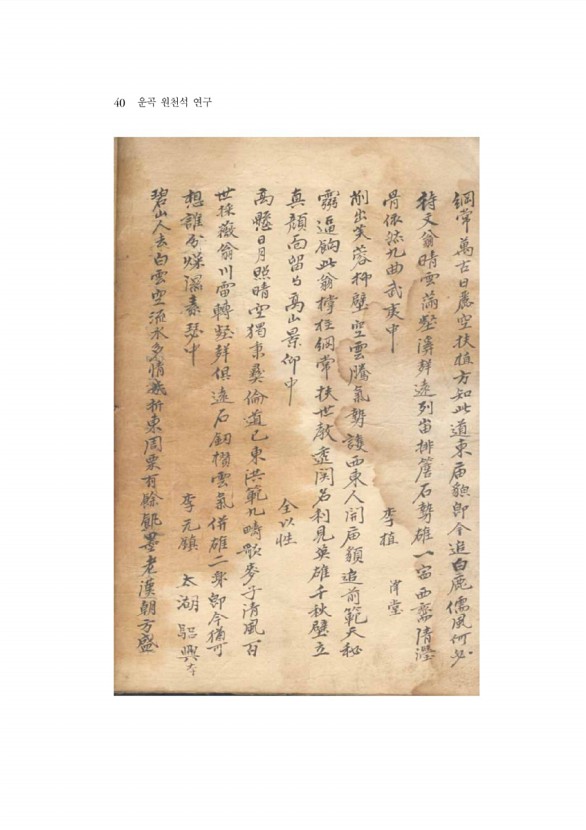 40 운곡 원천석 연구
綱常萬古日麗空扶植方知此道東庙貌卽今追白鹿儒風何必
待文翁晴雲滿壑溪聲遠列峀排簷石勢雄一宿西齋清
骨依然九曲武夷中
李植 澤堂
削出芙蓉抻壁空雲騰氣勢護西東人開庙額追前範天秘
靈區餉此翁撑柱綱常扶世敎盡関名利見英雄千秋壁立
真顔面留与高山景仰中
全以性
高懸日月照晴空獨秉彛倫道已東洪範九疇歌麥子清風百
世採薇翁川雷轉壑聲俱遠石釰攢雲氣併雄二聖卽今猶可
想誰分燥濕素琴中
李元鎮 太湖 驪興人
碧山人去白雲空流水多情無折東周粟有餘 墨老漢朝方盛